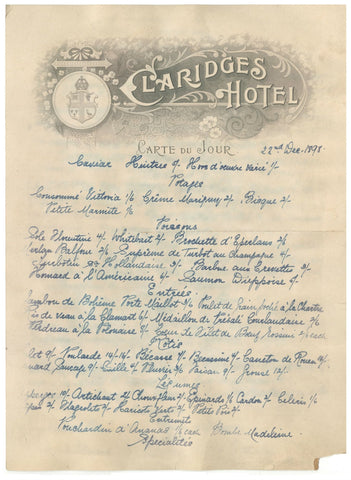 CLARIDGES
HOTEL
CARTE DU JOUR
22nd Dec. 1898.
Caviar Huitres 4/- Hors d'oeuvre varié 1/-
Potages
Consommé Victoria 1/6 Crême 2/- Bisque 2/-
Petite Marmite 1/-
Poissons
Sole Florentine 4/- Whitebait 2/- Brochette d'Eperlans 2/6
Balfour 2/6 Suprême de Turbot au Champagne 4/-
Hollandaise 3/- Barbue aux Crevettes 3/-
Homard à l'Américaine 4/- Saumon Dieppoise 4/-
Entrées
Jambon de Bohême Porte Maillot 3/- Poulet de Grain poêlé à la Chartres
Ris de veau à la Clamart 6/- Médaillon de Volaille Courlandaise
Perdreau à la Polonaise 7/- Coeur de Filet de Boeuf Rossini each
Rôtis
Poularde 14/- Bécasse 7/- Bécassine 5/- Caneton de Rouen
Canard Sauvage 6/- Caille 3/- Pluvier 3/6 Faisan 9/- Grouse 12/-
Légumes
Asperges 10/- Artichaut 2/- Choufleur 2/- Epinards 1/6 Cardon 2/- Céleris 1/6
Flageolets 2/- Haricots Verts 2/- Petits Pois 2/-
Entremets
Pouchardin d'Ananas each Bombe Madeleine
Specialités